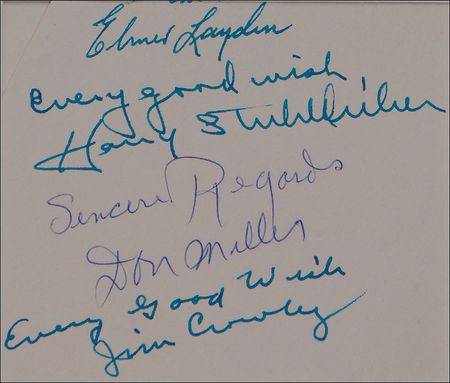 Elmer Layden
every good wish
Harry Stuhldreher
Sincere Regards
Don Miller
Every Good Wish
Jim Crowley